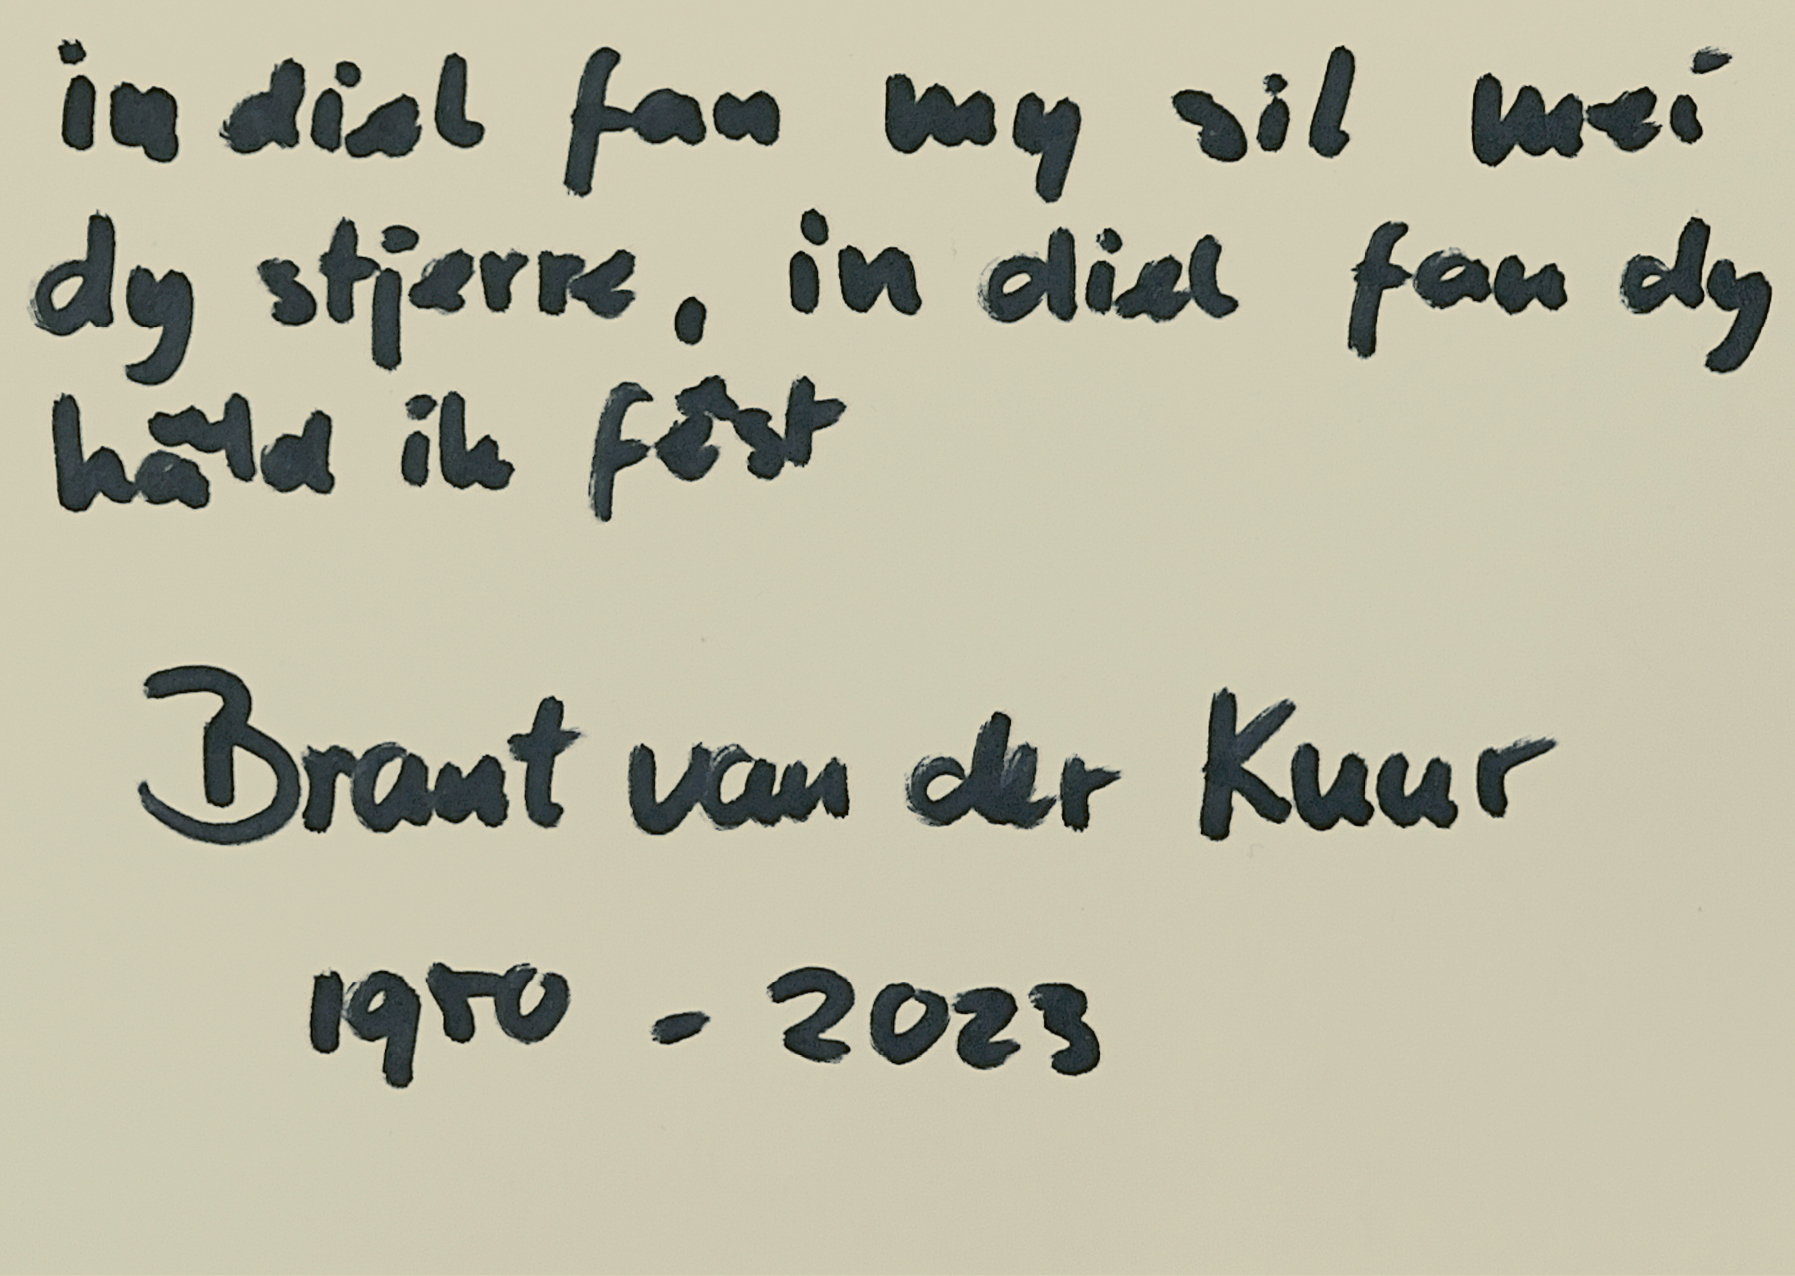 in diel fan my sil mei
dy stjerre, in diel fan dy
hâld ik fêst
Brant van der Kuur
1950 - 2023